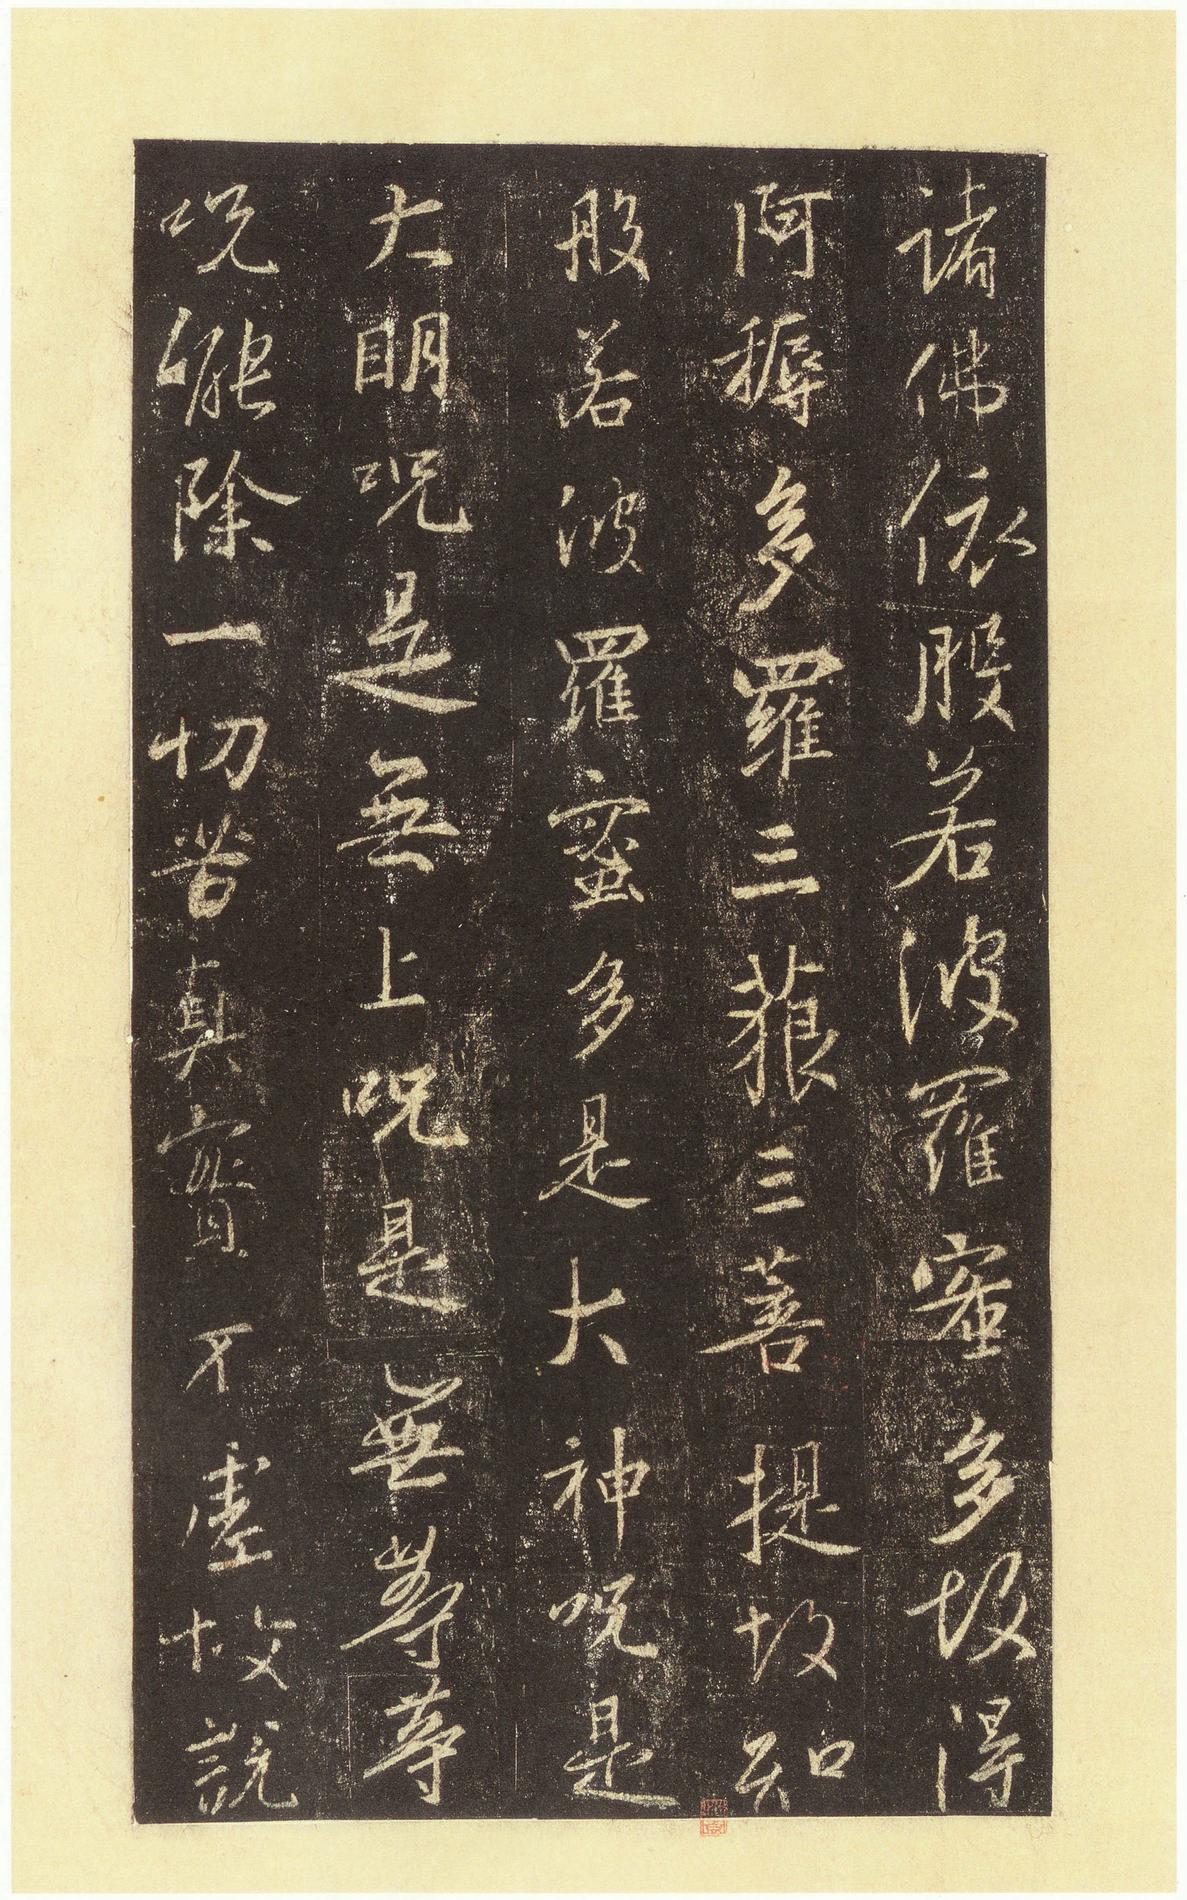 諸佛依般若波羅蜜多故得
阿耨多羅三藐三菩提故知
般若波羅蜜多是大神呪是
大明呪是無上呪是無等等
呪能除一切苦真實不虛故說